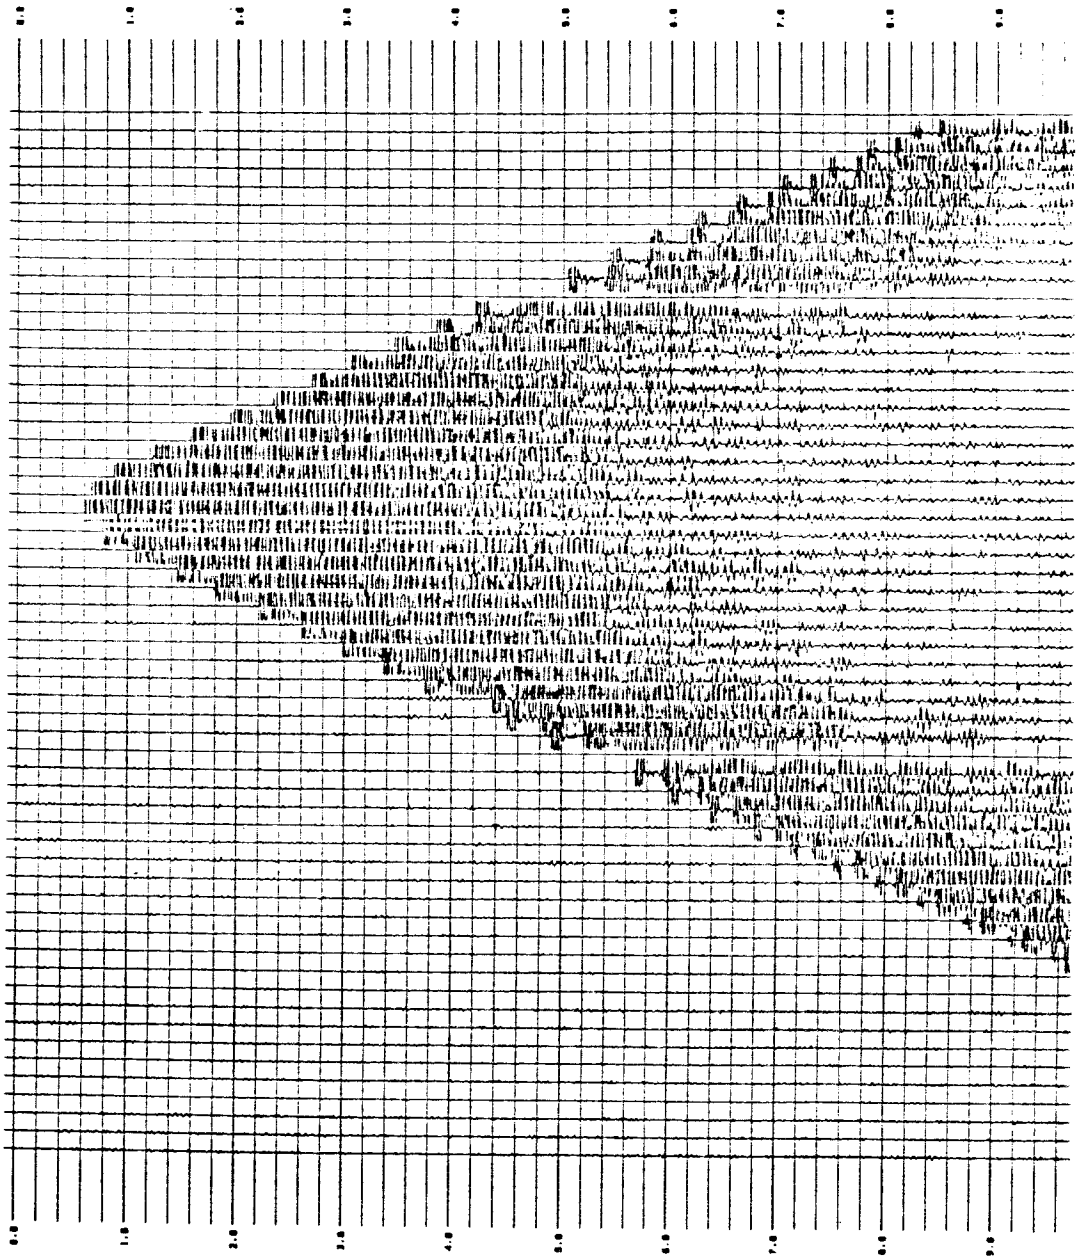 0.0
1.0
2.0
3.0
4.0
5.0
6.0
7.0
8.0
9.0
0.0
1.0
2.0
3.0
4.0
5.0
6.0
7.0
8.0
9.0